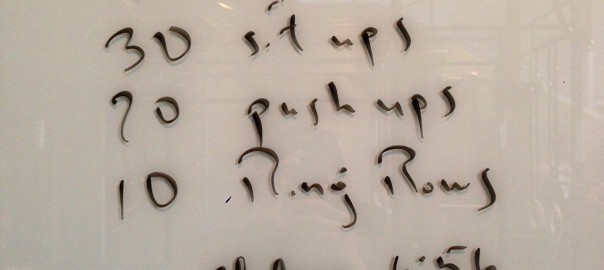 30 sit ups
20 push ups
10 Ring Rows